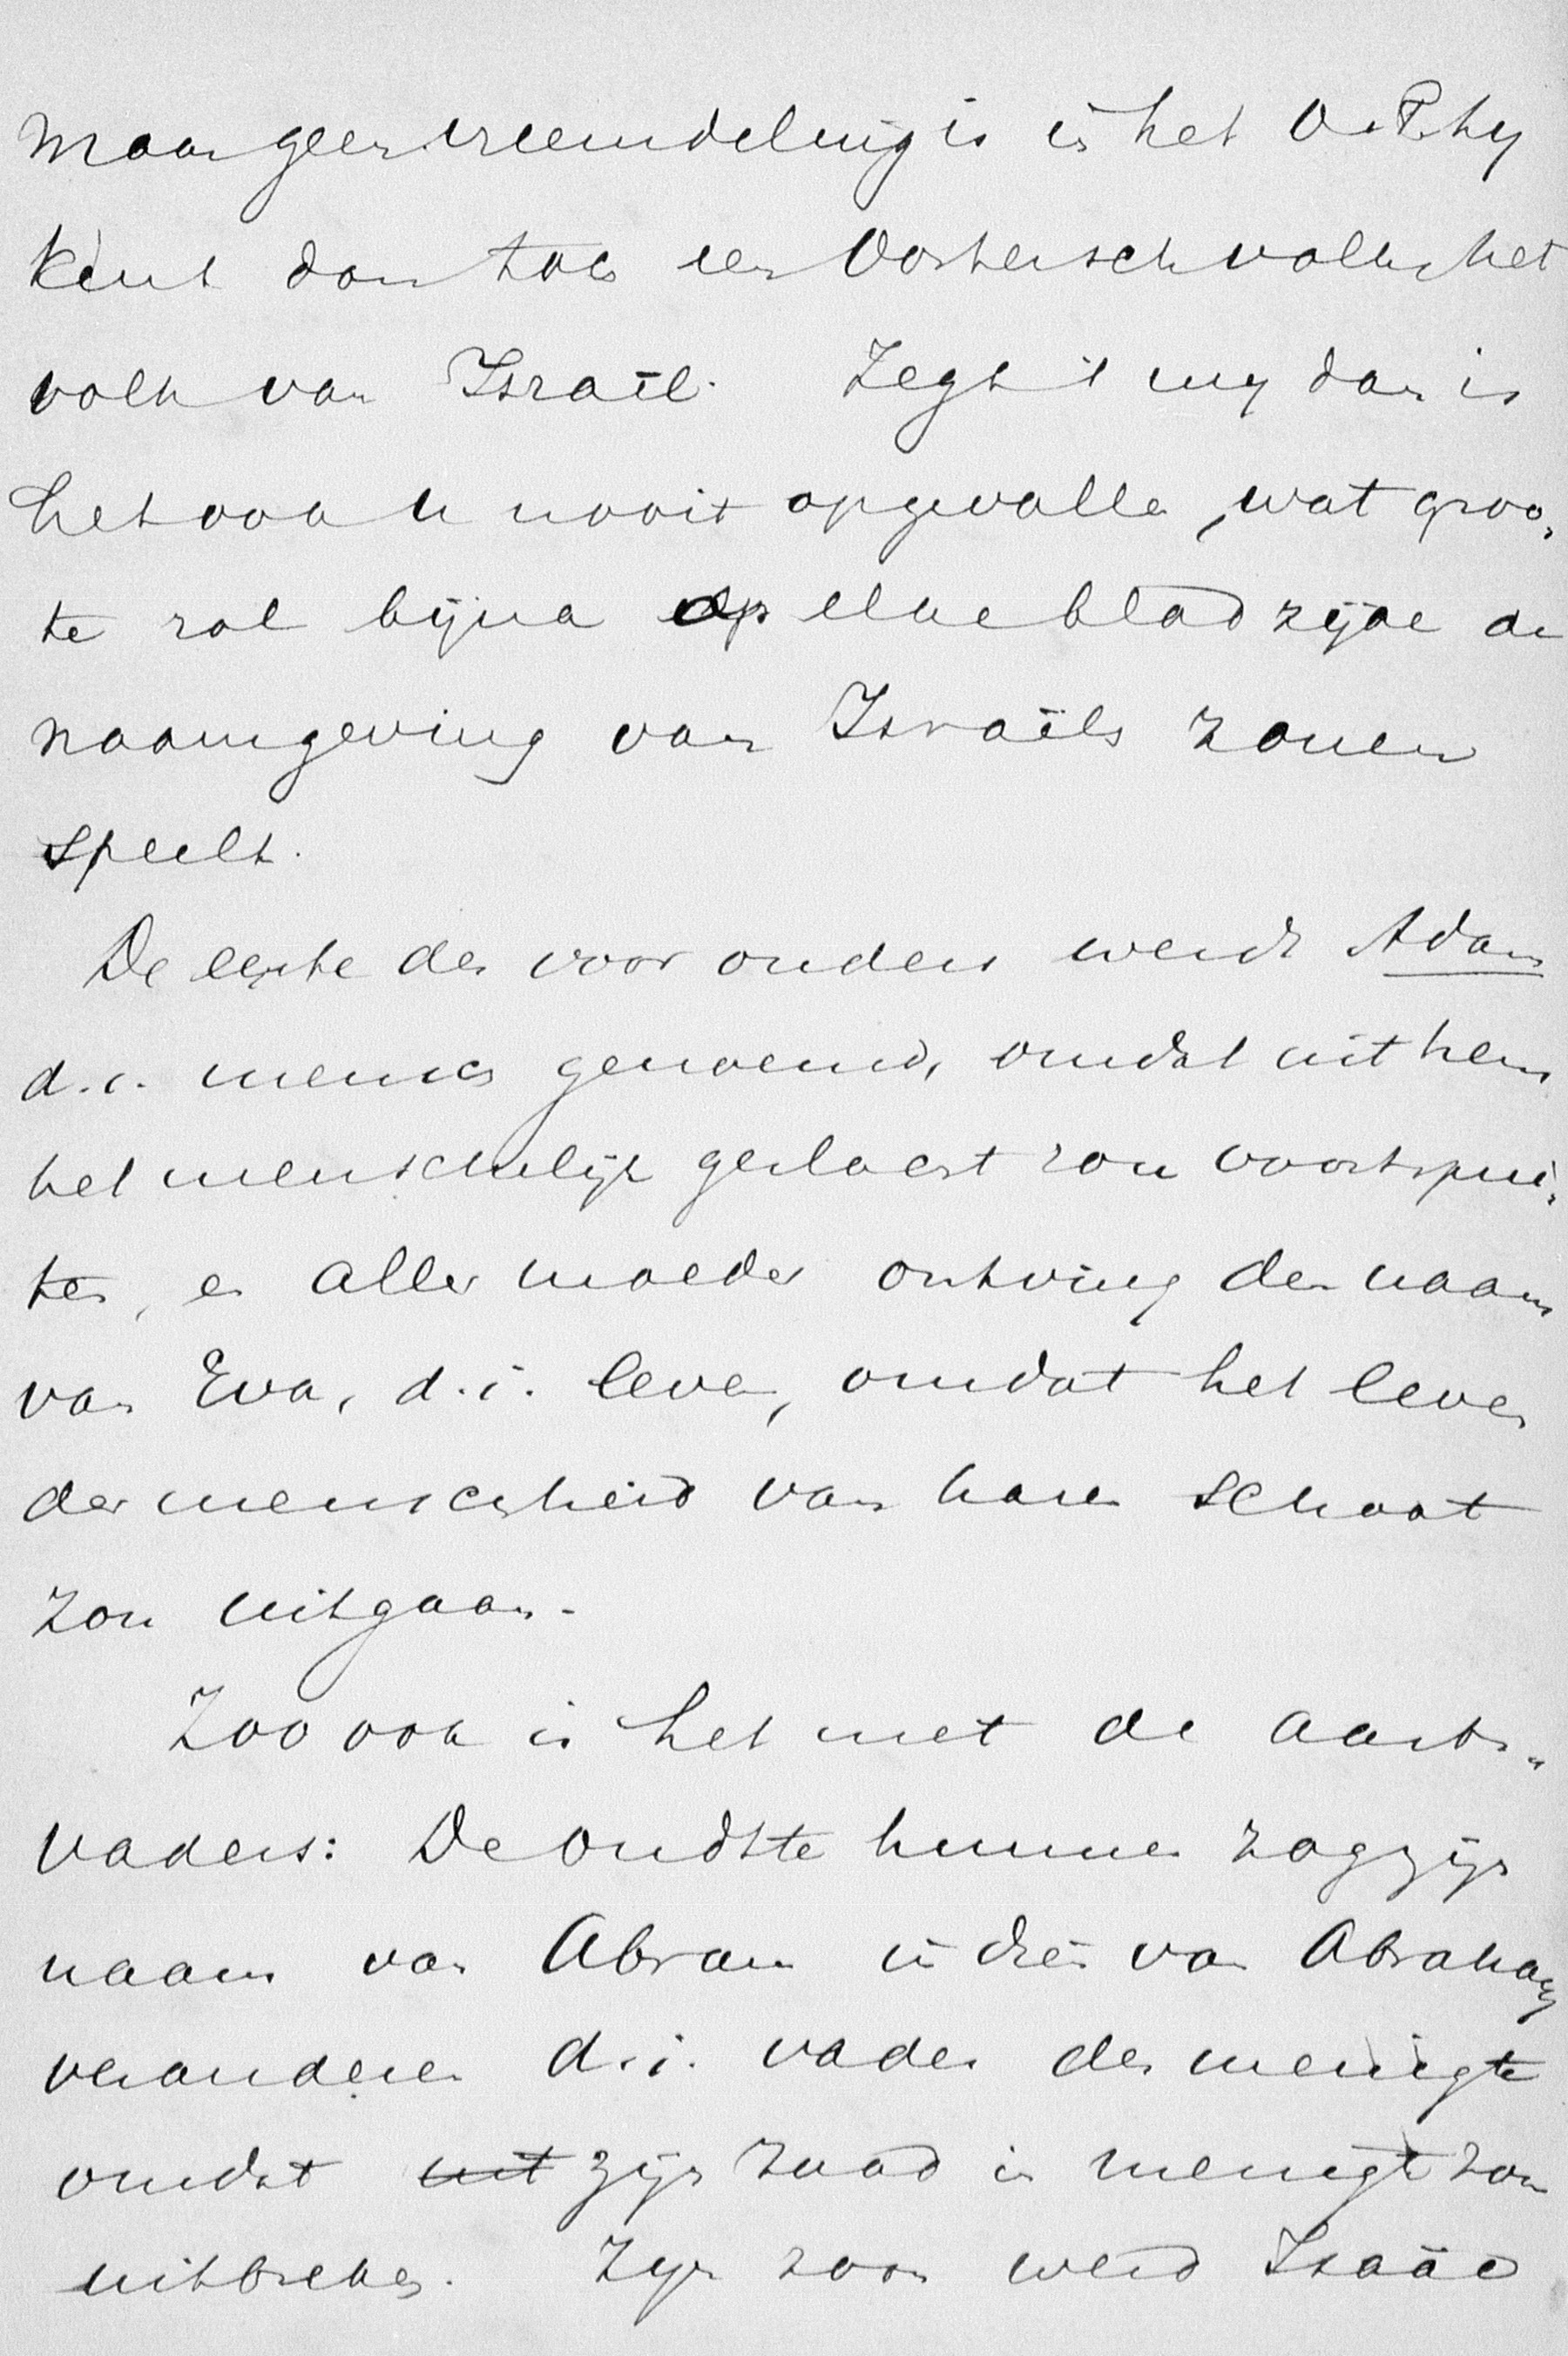 Maar geen vreemdeling is in het O.T. hy
kent dan toch een Oostersch volk, het
volk van Israël. Zegt 't my dan is
het ook u nooit opgevallen, wat groo„
te rol bijna op elke bladzijde de
naamgeving van Israëls zonen
speelt.
De eerste der voorouders werdt Adam
d.i. mensch genoemd, omdat uit hem
het menschelijk geslacht zou voortsprui„
ten, en aller moeder ontving den naam
van Eva, d.i. leven, omdat het leven
der menschheid van haren schoot
zou uitgaan.
Zoo ook is het met de aarts„
vaders: De oudste hunner zag zijn
naam van Abram in dien van Abraham
veranderen d.i. vader der menigte
omdat uit zijn zaad in menigte zou
uitbreken. Zijn zoon werd Isaäc